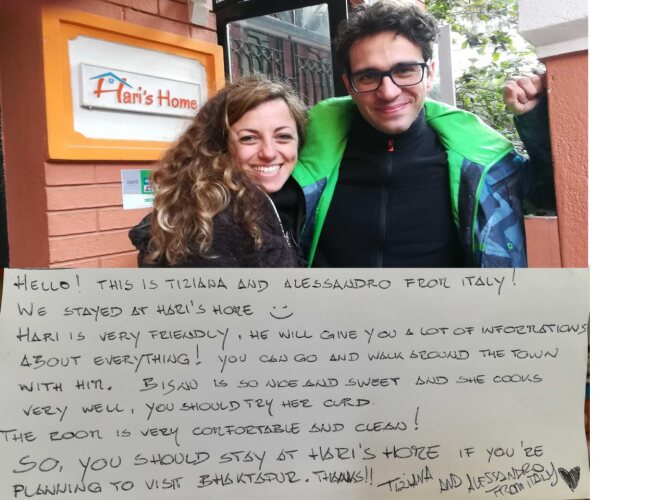 Hari's Home
HELLO! THIS IS TIZIANA AND ALESSANDRO FROM ITALY!
WE STAYED AT HARI'S HOME
HARI IS VERY FRIENDLY, HE WILL GIVE YOU A LOT OF INFORMATIONS
ABOUT EVERYTHING! YOU CAN GO AND WALK AROUND THE TOWN
WITH HIM. BISNU IS SO NICE AND SWEET AND SHE COOKS
VERY WELL, YOU SHOULD TRY HER CURD.
THE ROOM IS VERY COMFORTABLE AND CLEAN!
SO, YOU SHOULD STAY AT HARI'S HOME IF YOU'RE
PLANNING TO VISIT BHAKTAPUR. THANKS!!
TIZIANA AND ALESSANDRO
FROM ITALY